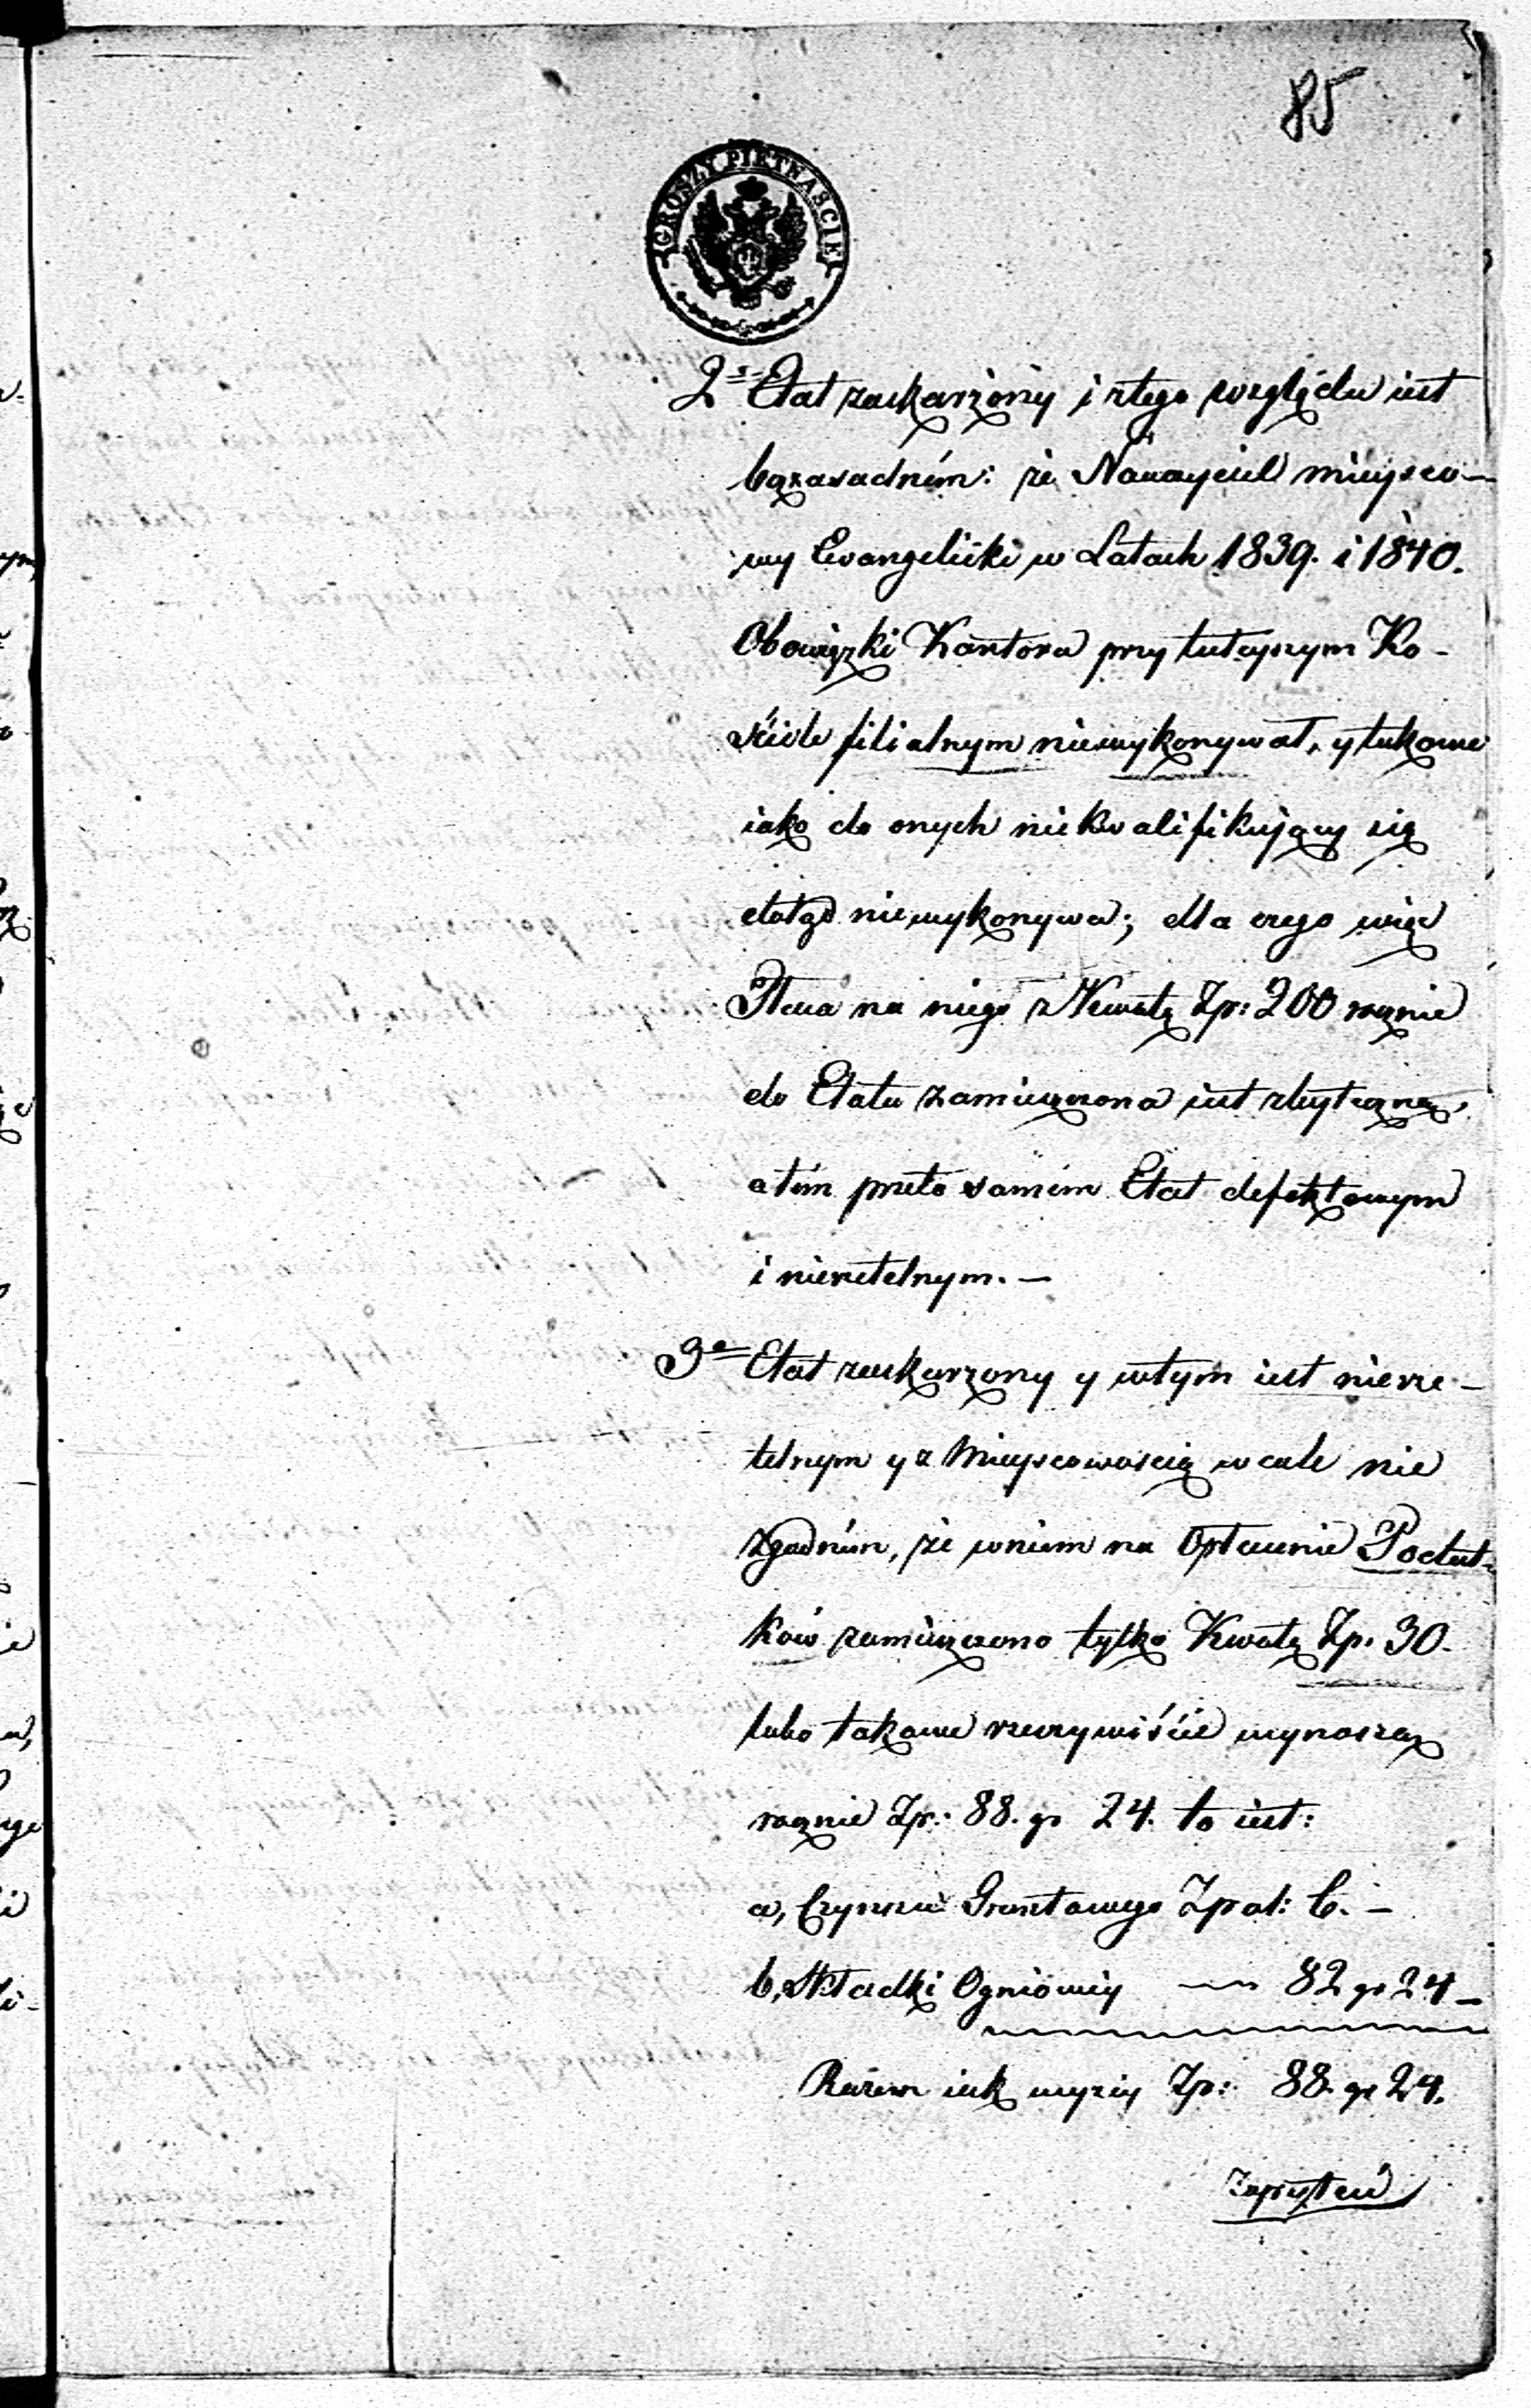 85
GROSZY PIETNAŚCIE
2e Etat zaskarżony i z tego względu iest
bezzasadnim: że Nauczyciel mieysco-
wy Ewangelicki w Latach 1839. i 1840.
Obowiązki Kantora przy tuteyszym Ko-
ściele filialnym niewykonywał, y takowe
iako do onych niekwalifikujący się
dotąd niewykonywa; dla czego więc
Płaca na niego z Kwotą Zp: 200 rocznie
do Etatu zamieszczona iest zbyteczną,
a tém przeto samém Etat defektowym
i nierzetelnym. —
3e Etat zaskarzony y wtym iest nierze-
telnym y z Mieyscowością wcale nie
zgodnim, że wniem na Opłacenie Podat-
ków zamieszczono tylko Kwotę Zp. 30.
lubo takowe rzeczywiście wynoszą
rocznie Zp: 88. gr 24. to iest:
a, Czynszu Gruntowego Zpol: 6. —
b, Składki Ogniowéy — 82 gr 24 —
Razem iak wyżéy Zp: 88. gr 24.